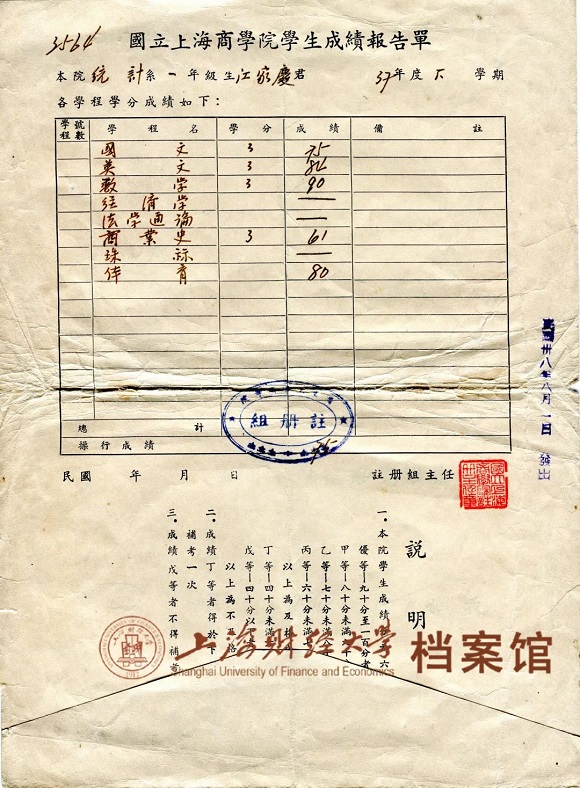 3564
國立上海商學院學生成績報告單
本院統計系一年級生江家慶君 37年度下學期
各學程學分成績如下：
學程號數 學程名 學分 成績 備註
國文 3 75
英文 3 84
數學 3 90
經濟學 —
法學通論 —
商業史 3 61
珠祘 —
体育 80
總計
操行成績 75
註册組
民國 年 月 日
註册組主任
民國卅八年八月一日發出
說明
一．本院學生成績
優等—九十分至一百分者
甲等—八十分未滿九十
乙等—七十分未滿八
丙等—六十分未滿
以上為及格
丁等—四十分未滿
戊等—四十分以
以上為不及格
二．成績丁等者得於下
補考一次
三．成績戊等者不得補考
上海财经大学 档案馆
Shanghai University of Finance and Economics
1917